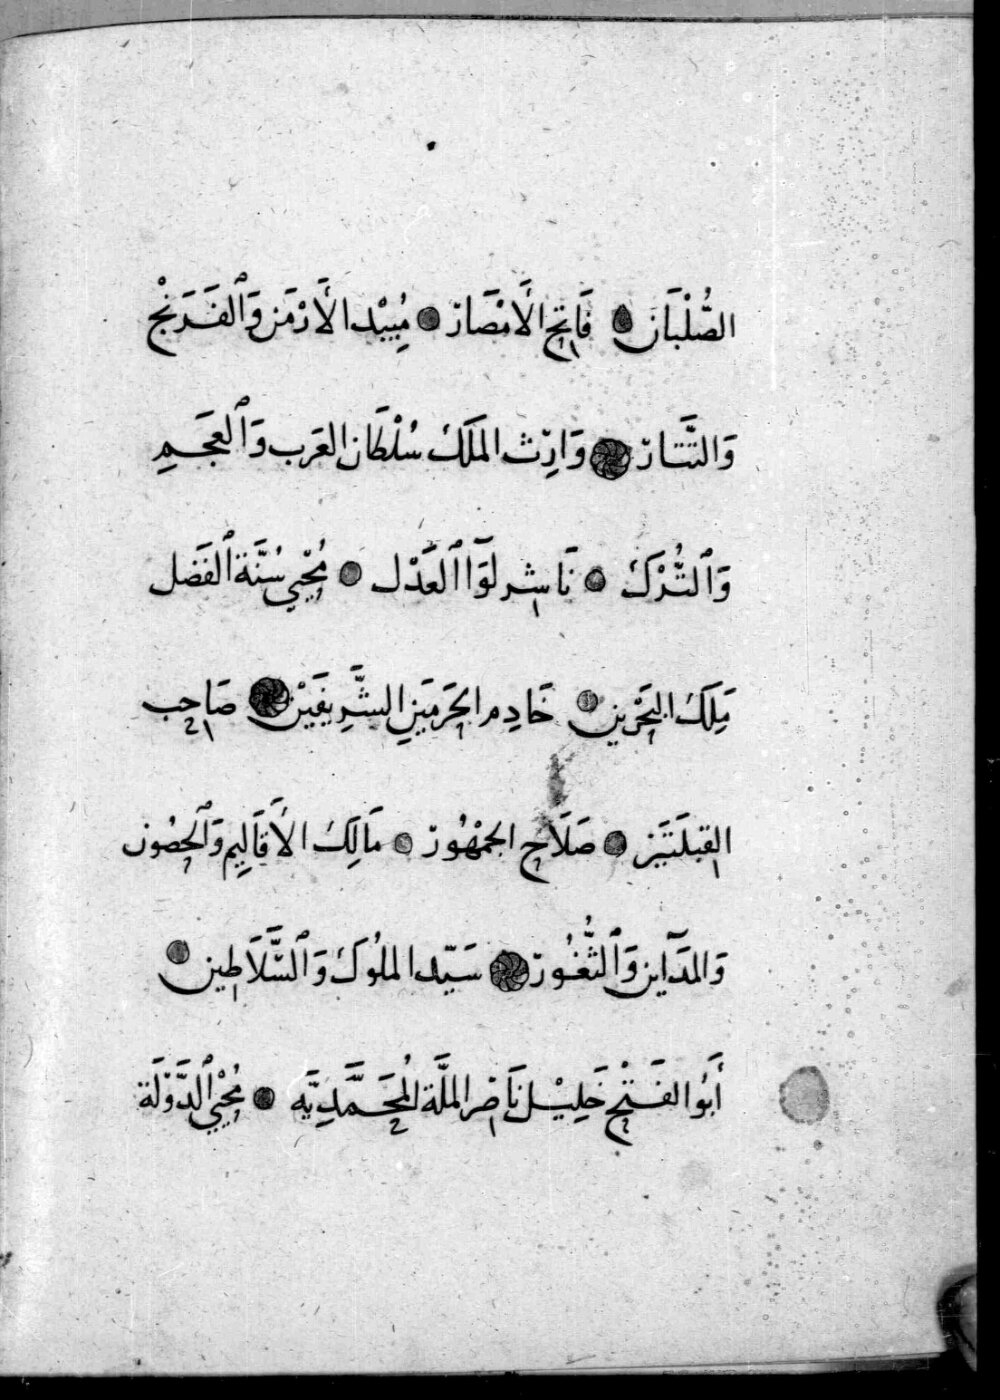 الصُّلْبَان فَاتِح الْأَمْصَار مُبِيْد الْأَرْمَن وَٱلفَرَنْج
وَالتَّتَار وَارِث المَلَك سُلْطَان العَرَب وَٱلعَجَمِ
وَٱلتُّرْك نَاشِر لَوَآ ٱلعَدْل مُحْيِي سُنَّة ٱلفَضل
مَلِك البَحْرَين خَادِم الحَرَمَينِ الشَّرِيفَيْن صَاحِب
القِبلَتَين صَلَاح الجمْهُور مَالِك الأَقَالِيم وَٱلحصُون
وَالمدَآين وَٱلثُّغُور سَيّد الملُوك وَٱلسَّلَاطِين
أَبُو الفَتْح خَلِيْل نَاصِر الملَّة المُحَمَّدِيَّه مُحْيِي ٱلدَّوْلَة